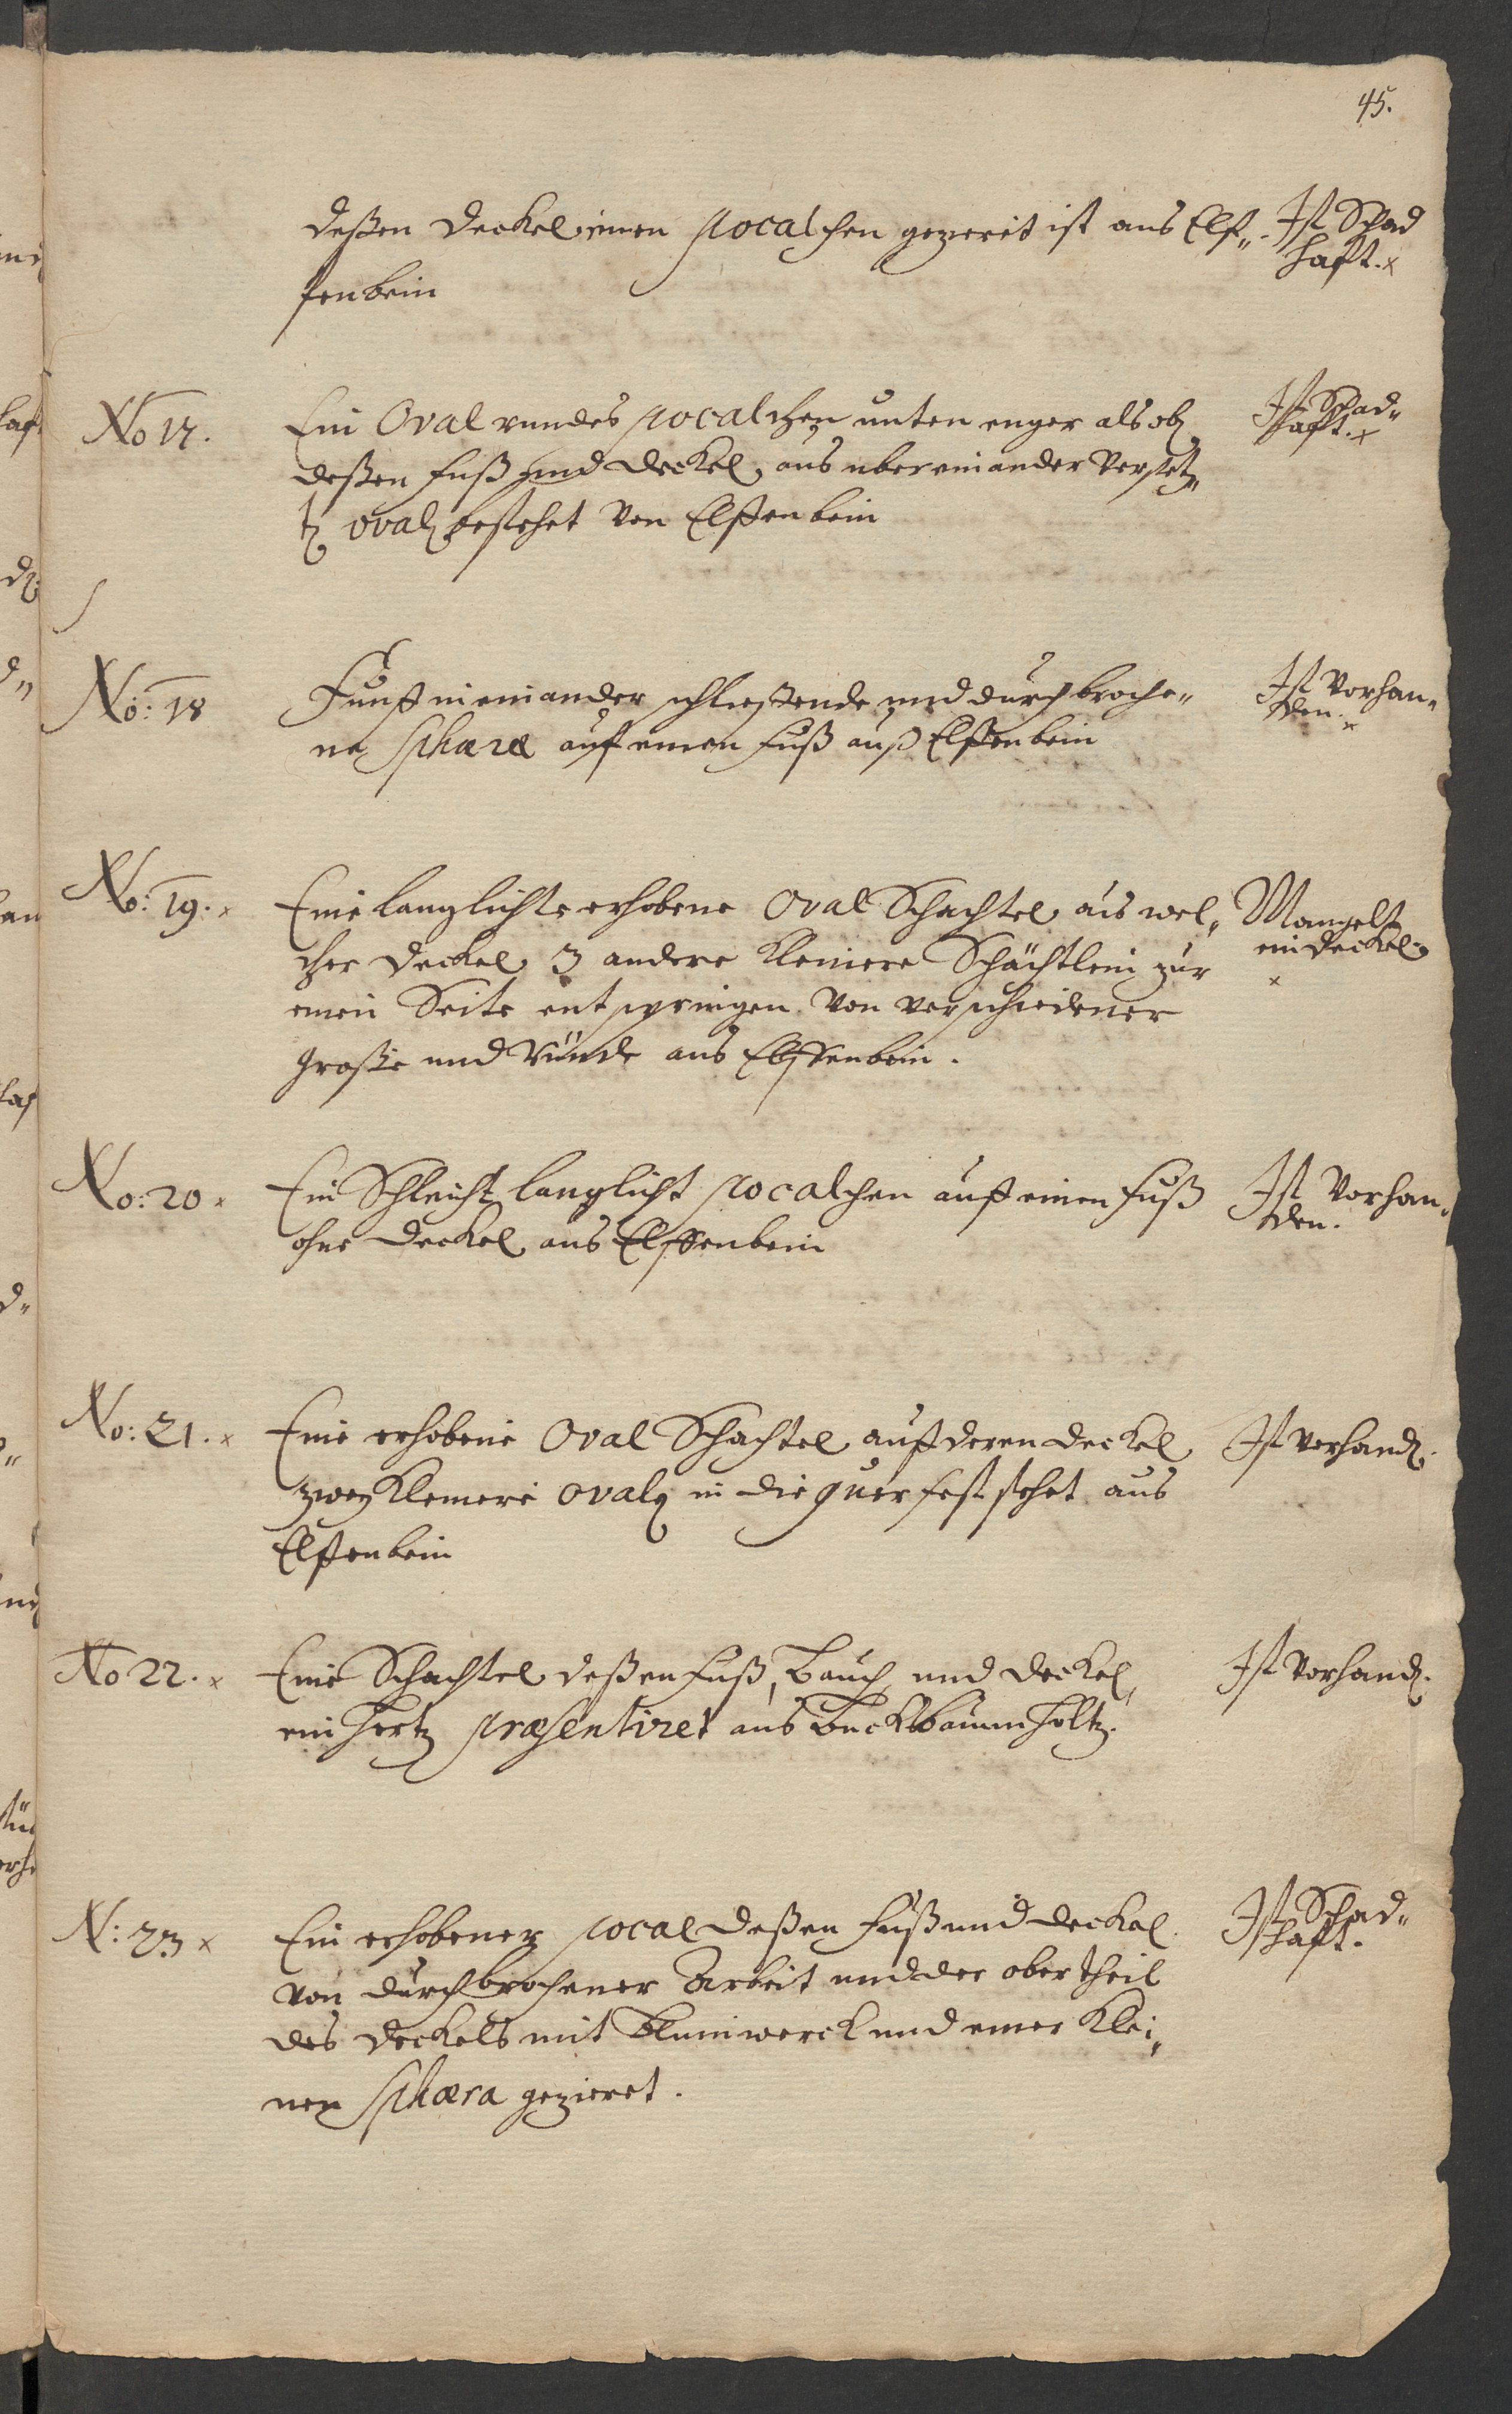 45.
deßen Deckel einen pocalchen gezieret ist aus Elf„
fenbein
Ist Schad
hafft. x
No 17.
Ein Oval rundes pocalchen unten enger als obē
deßen fuß und deckel, aus ubereinander versetz„
tē ovalē bestehet von Elffenbein
Ist Schad„
hafft. x
No: 18
Funff in einander schliessende und durchbroche„
ne sphæræ auf einen fuß auß Elffenbein
Ist vorhan„
den. x
No: 19. x
Eine langlichte erhobene Oval Schachtel aus wel„
cher deckel 3 andere kleinere Schächtlein zur
einen Seite entspringen von verschiedener
große und Ründe aus Elffenbein.
Mangelt
ein deckel
x
No: 20 x
Ein Schleicht langlicht pocalchen auff einen fuß
ohne deckel aus Elffenbein
Ist vorhan„
den.
No: 21. x
Eine erhobene Oval Schachtel auff deren deckel
zwey kleinere ovalē in die quer fest stehet aus
Elffenbein
Ist vorhandē.
No 22. x
Eine Schachtel deßen fuß, Bauch und deckel,
ein Hertz præsentiret aus Bucksbaumholtz.
Ist vorhandē.
N: 23 x
Ein erhobener pocal deßen fuß und deckel
von durchbrochener Arbeit und der ober theil
des deckels mit Blumwerck und einer klei„
nen sphæra gezieret.
Ist Schad„
hafft.